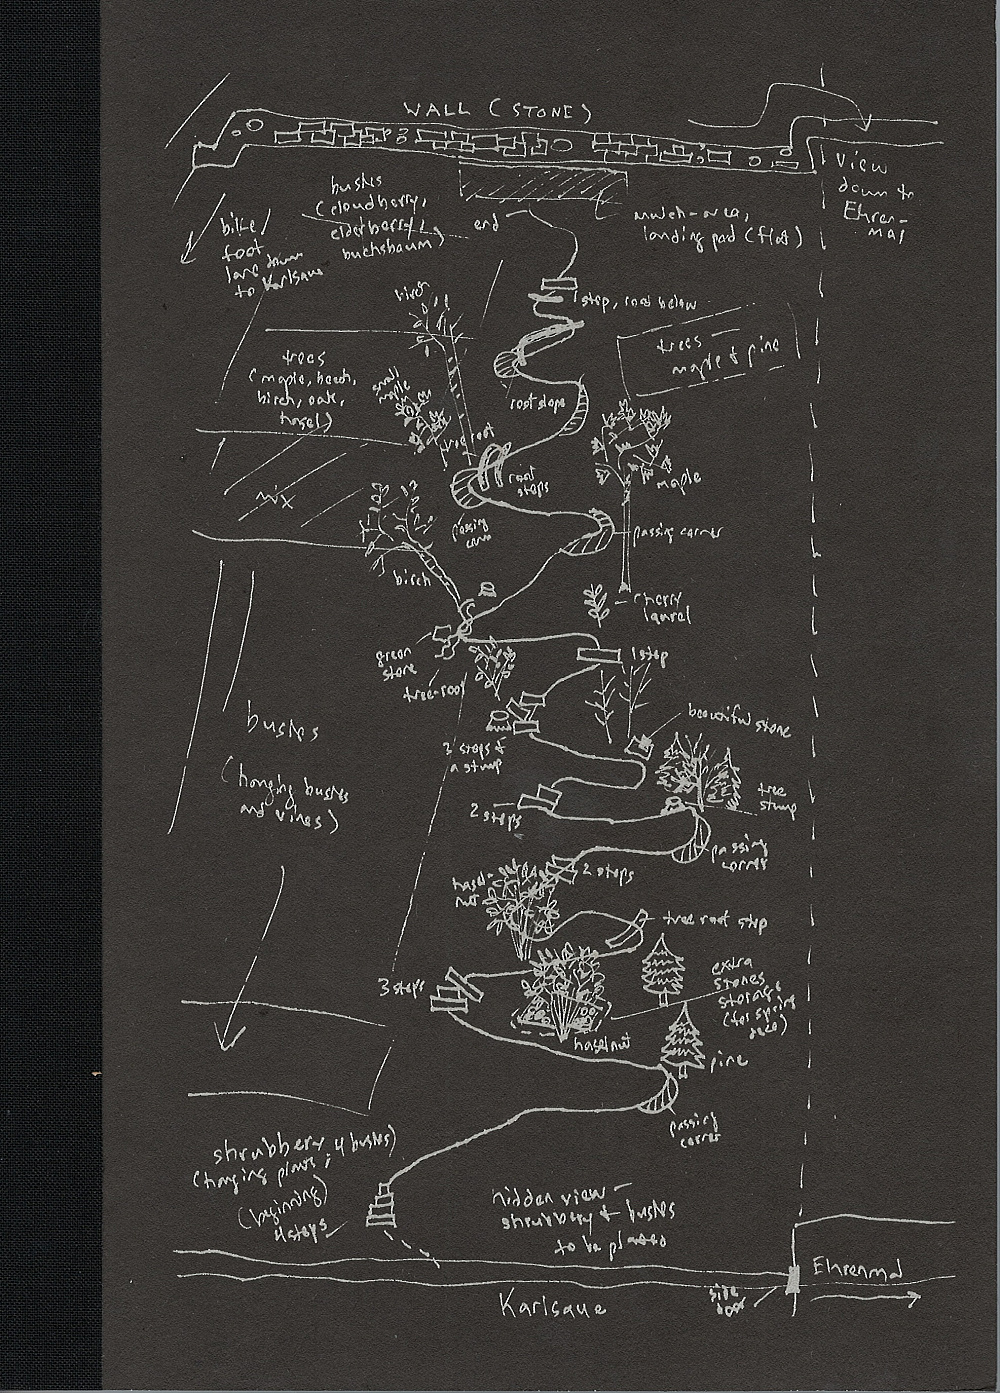 WALL (STONE)
View
down to
Ehren-
mal
bushes
(cloudberry,
elderberry,
buchsbaum)
end
mulch-area,
landing pad (flat)
bike/
foot
lane down
to Karlsaue
1 step, root below
birch
trees
maple & pine
trees
(maple, beech,
birch, oak,
hasel)
small
maple
root steps
tree root
root
steps
maple
mix
passing
corner
passing corner
birch
cherry
laurel
green
stone
tree-root
1 step
beautiful stone
bushes
3 steps &
a stump
(hanging bushes
and vines)
tree
stump
2 steps
passing
corner
2 steps
hasel-
nut
tree root step
3 steps
extra
stones
storage
(for spring
haselnut
pine
passing
corner
shrubbery, 4 bushes)
(hanging plants,
(beginning)
4 steps
hidden view –
shrubbery & bushes
to be planted
Ehrenmal
side
door
Karlsaue